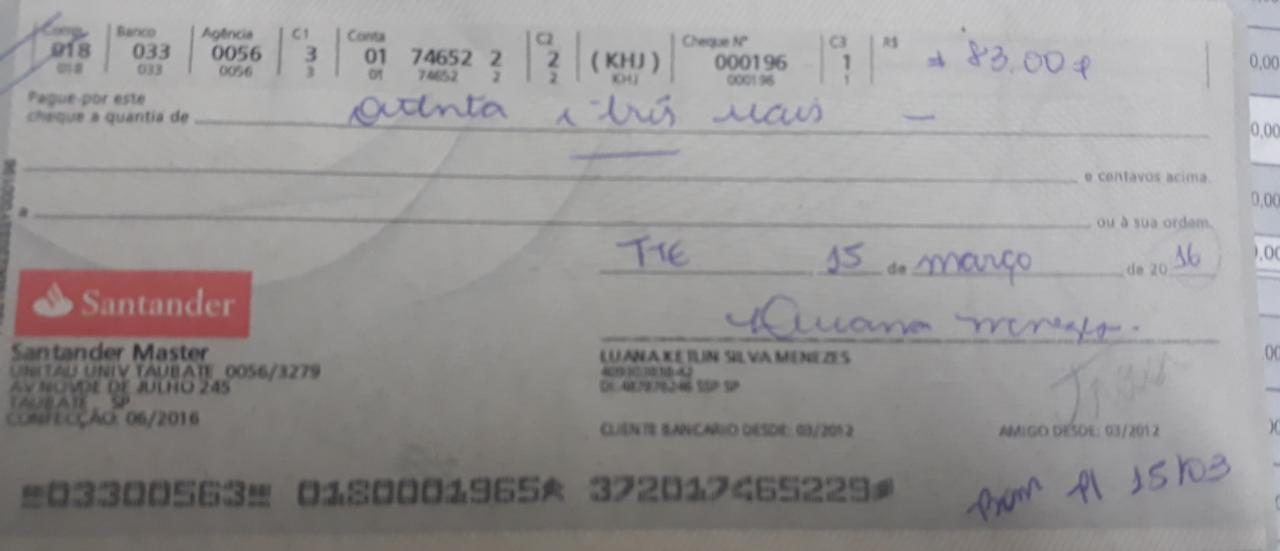 Comp. Banco Agência C1 Conta C2 Cheque Nº C3 R$
018 033 0056 3 01 74652 2 2 (KHJ) 000196 1 83,00
018 033 0056 3 01 74652 2 2 KHJ 000196 1
Pague por este
cheque a quantia de oitenta e três reais
e centavos acima.
a ou à sua ordem.
TTE 15 de março de 20 16
Santander
Luana Menezes.
Santander Master
UNITAU UNIV TAUBATE 0056/3279
AV NOVDE DE JULHO 245
TAUBATE SP
CONFECÇÃO: 06/2016
LUANA KETLIN SILVA MENEZES
SSP SP
CLIENTE BANCARIO DESDE: 03/2012 AMIGO DESDE: 03/2012
03300563 0180001965 372017465229
15/03